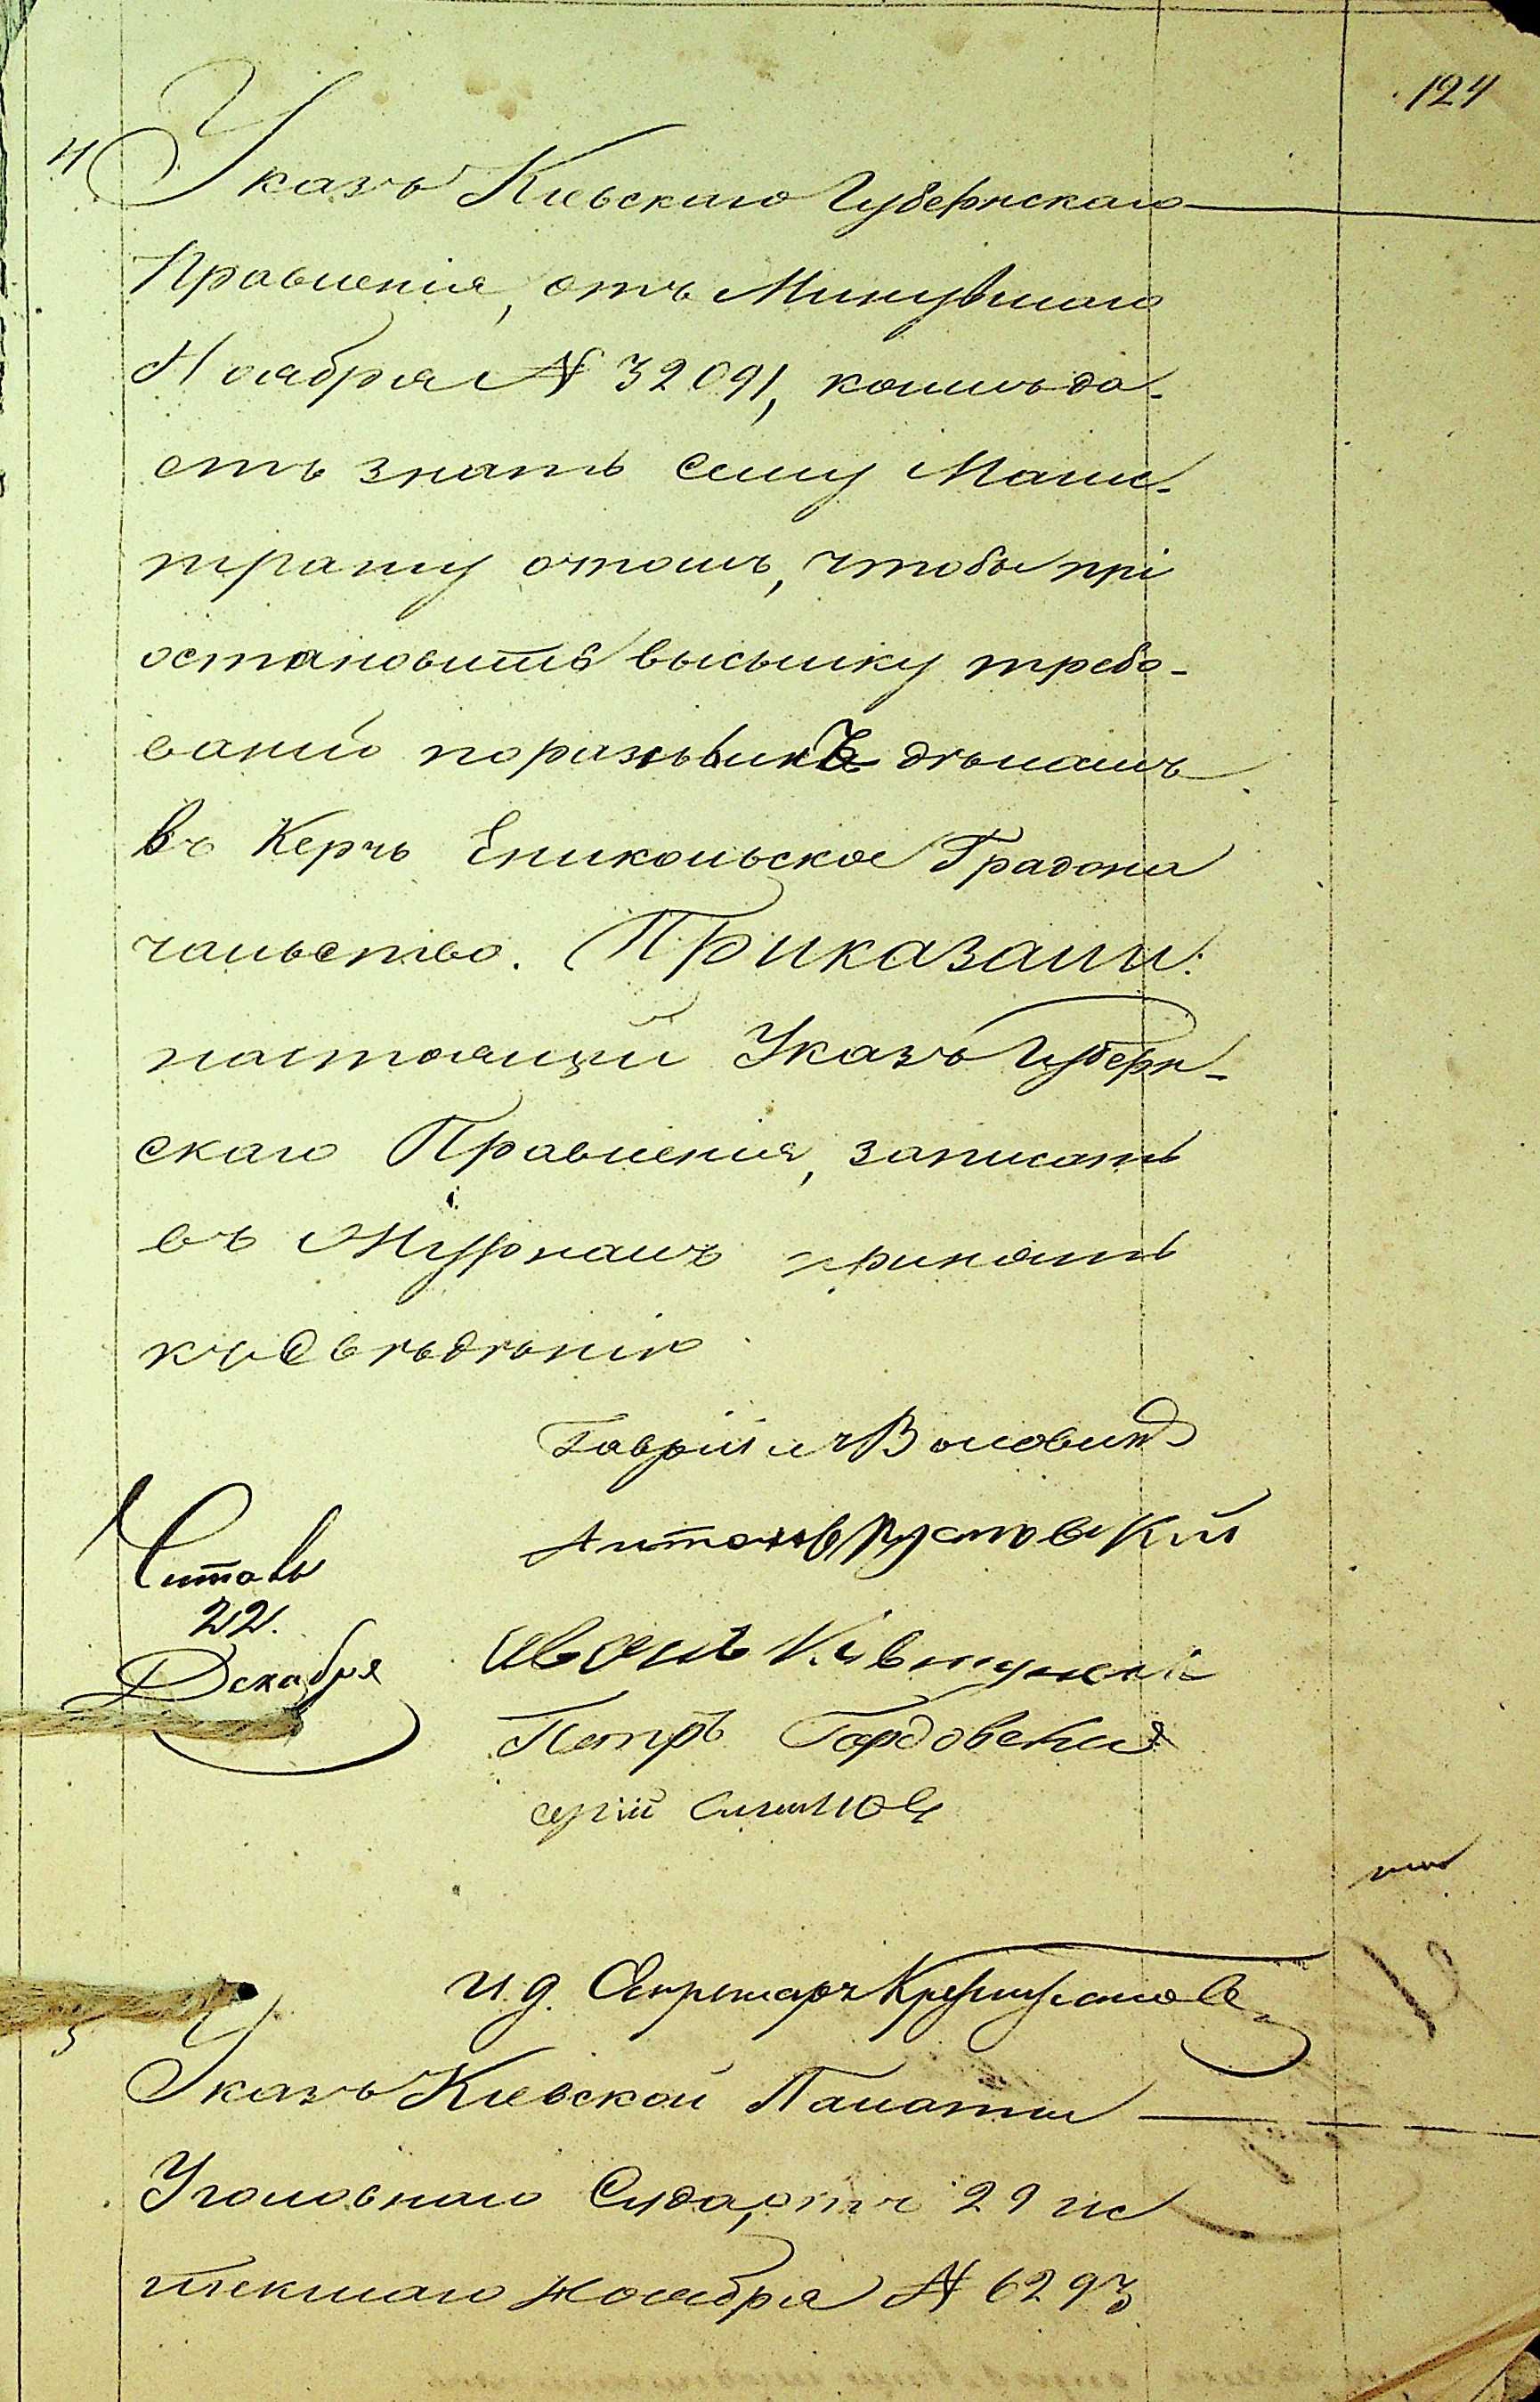 124
4
Указъ Кіевскаго Губернскаго
Правленія, отъ Минувшаго
Ноября № 32091, коимъ да-
етъ знать сему Маги-
трату отомъ, чтобы прі
остановить высылку требо-
ваній поразнымъ дѣламъ
Въ Керчь Еникольское Градона
чальство. Приказали:
настоящій Указъ Губерн-
скаго Правленія, записать
въ Журналъ принять
къ Свѣдѣнію
Гаврііл Воловик
Антонъ Пустовскій
Читалъ
22.
Декабря
Иванъ
Петръ Гордовскій
сергій
И.д. Секретарь
5
Указъ Кіевской Палаты
Уголовнаго Суда, отъ 29 ис
текшаго Ноября № 6293